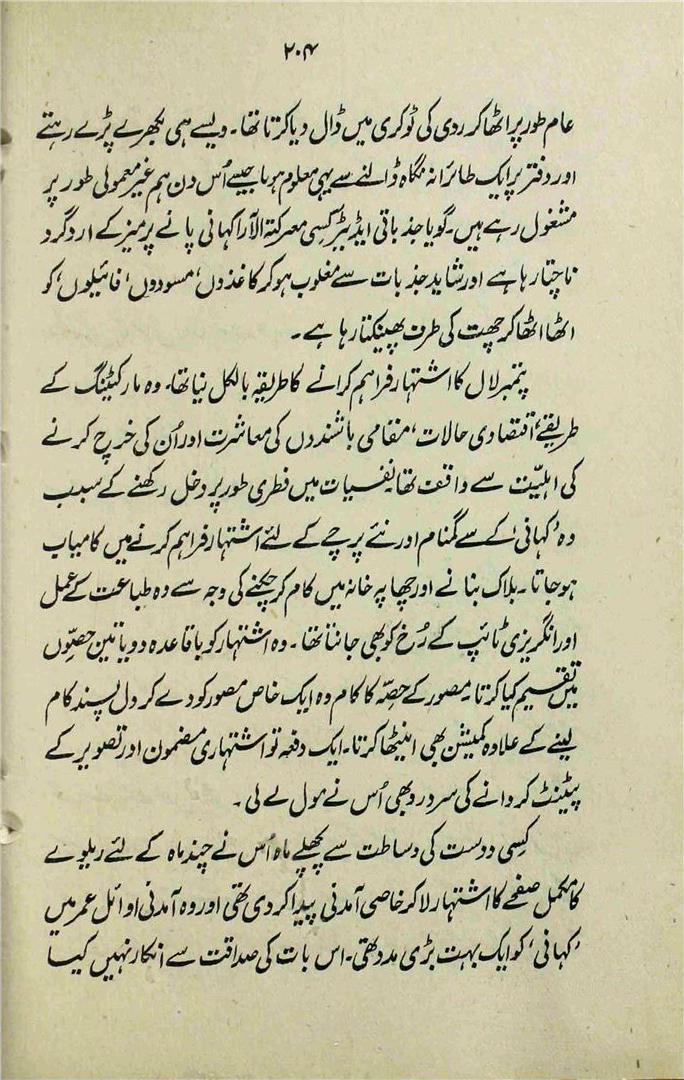 ۲۰۴
عام طور پر اٹھا کر ردی کی ٹوکری میں ڈال دیا کرتا تھا۔ ویسے ہی بکھرے پڑے رہتے
اور دفتر پر ایک طائرانہ نگاہ ڈالنے سے یہی معلوم ہوتا جیسے اُس دن ہم غیر معمولی طور پر
مشغول رہے ہیں۔ گویا جذباتی ایڈیٹر کسی معرکۃ الآرا کہانی پانے پر میز کے ارد گرد
ناچتا رہا ہے اور شاید جذبات سے مغلوب ہو کر کاغذوں، مسودوں، فائیلوں، کو
اٹھا اٹھا کر چھت کی طرف پھینکتا رہا ہے۔
پتمبر لال کا اشتہار فراہم کرانے کا طریقہ بالکل نیا تھا۔ وہ مارکٹینگ کے
طریقے، اقتصادی حالات، مقامی باشندوں کی معاشرت اور اُن کی خرچ کرنے
کی اہلیّت سے واقف تھا۔ نفسیات میں فطری طور پر دخل رکھنے کے سبب
وہ ’کہانی‘ کے سے گمنام اور نئے پرچے کے لئے اشتہار فراہم کرنے میں کامیاب
ہو جاتا۔ بلاک بنانے اور چھاپہ خانہ میں کام کر چکنے کی وجہ سے وہ طباعت کے عمل
اور انگریزی ٹائپ کے رُخ کو بھی جانتا تھا۔ وہ اشتہار کو باقاعدہ دو یا تین حصّوں
میں تقسیم کیا کرتا۔ مصور کے حصّہ کا کام وہ ایک خاص مصور کو دے کر دل پسند کام
لینے کے علاوہ کمیشن بھی اینٹھا کرتا۔ ایک دفعہ تو اشتہاری مضمون اور تصویر کے
پیٹنٹ کروانے کی سر درد بھی اُس نے مول لے لی۔
کسی دوست کی وساطت سے پچھلے ماہ اُس نے چند ماہ کے لئے ریلوے
کا مکمل صفحے کا اشتہار لا کر خاصی آمدنی پیدا کر دی تھی اور وہ آمدنی اوائل عمر میں
’کہانی‘ کو ایک بہت بڑی مدد تھی۔ اس بات کی صداقت سے انکار نہیں کیا